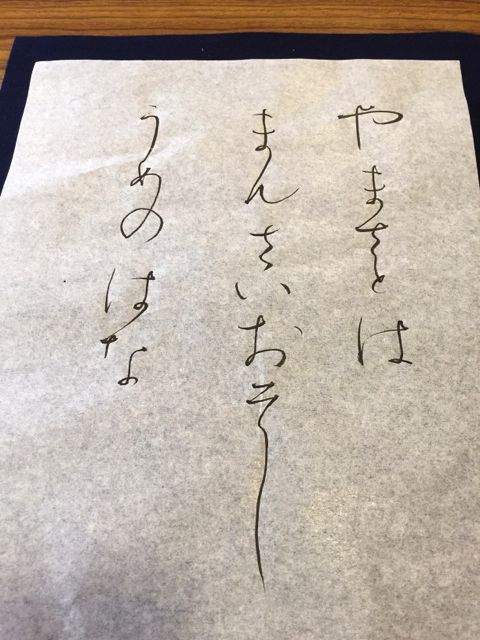 やまさとは
まんさいおそし
うめのはな